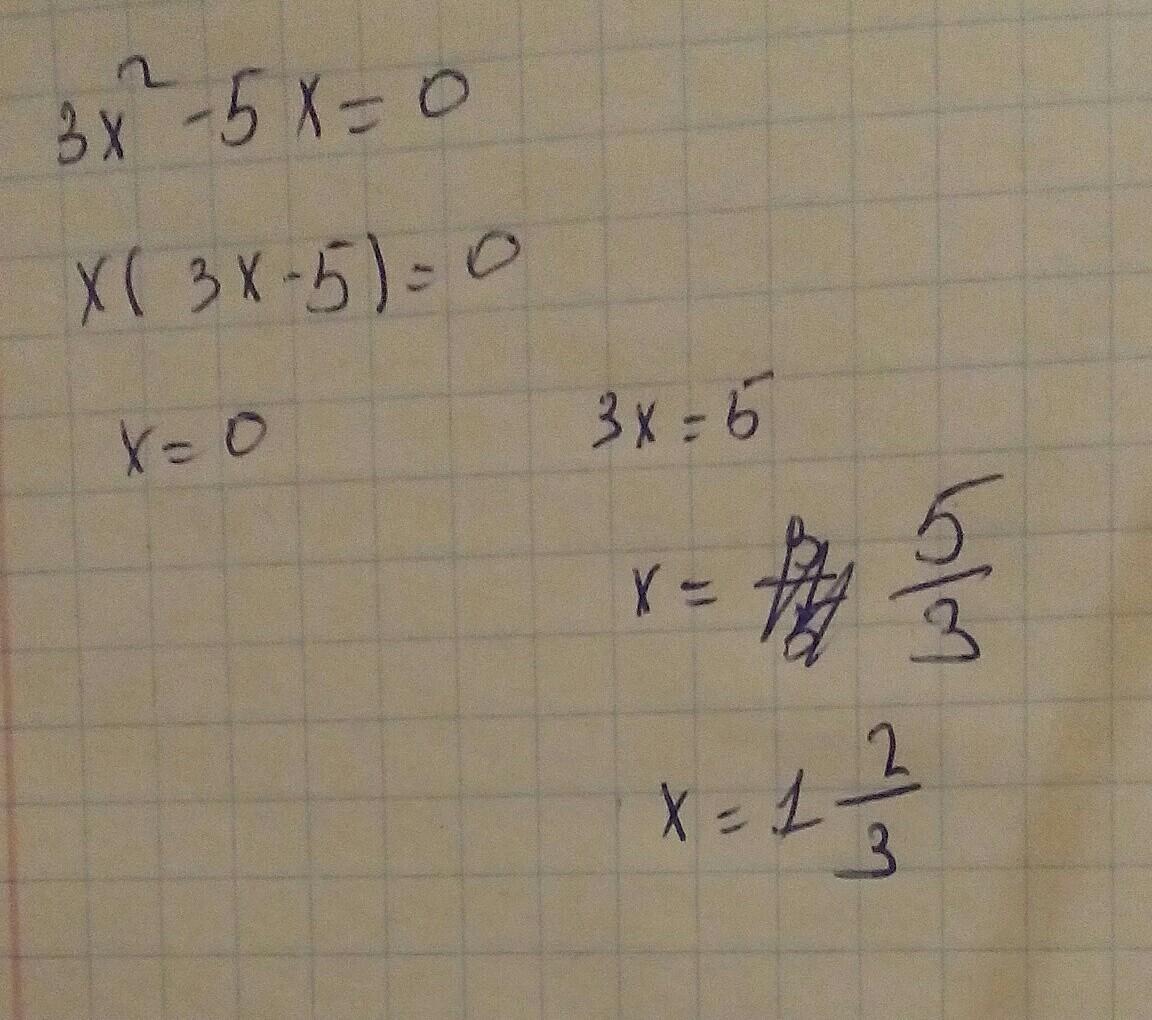 3x² - 5x = 0
x( 3x - 5) = 0
x = 0
3x = 5
x = 5/3
x = 1 2/3